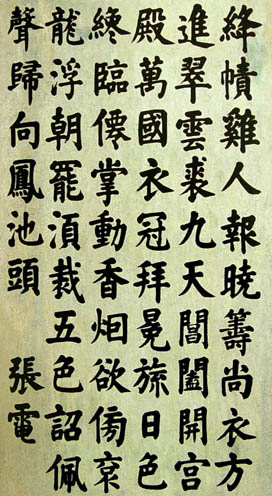 絳幘雞人報暁籌尚衣方
進翠雲裘九天閶闔開宮
殿萬國衣冠拜冕旒日色
纔臨僊掌動香烟欲傍袞
龍浮朝罷湏裁五色詔佩
聲歸向鳳池頭 張電